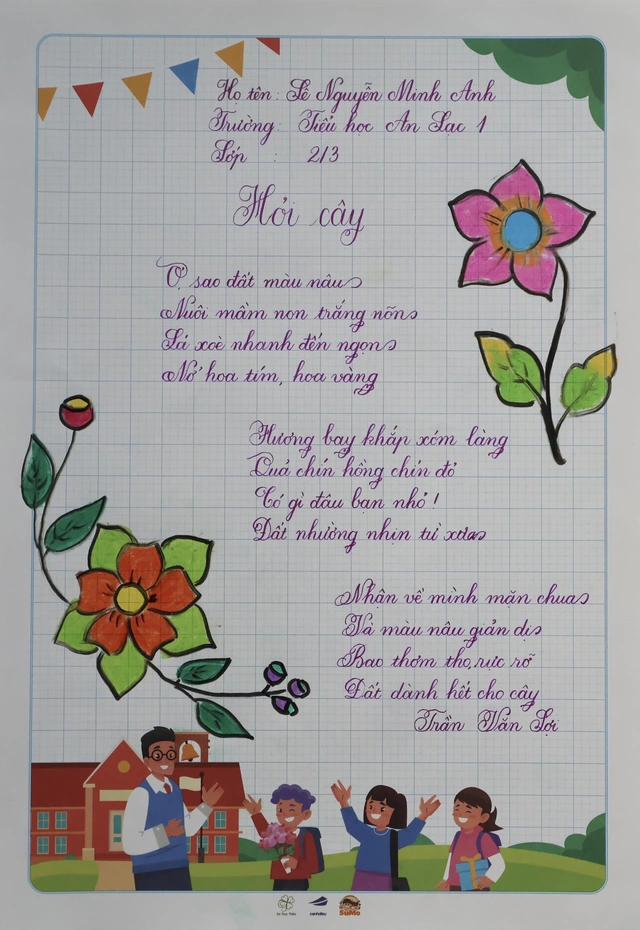 Họ tên: Lê Nguyễn Minh Anh
Trường: Tiểu học An Lạc 1
Lớp : 2/3
Hỏi cây
Vì sao đất màu nâu
Nuôi mầm non trắng nõn
Lá xoè nhanh đến ngọn
Nở hoa tím, hoa vàng
Hương bay khắp xóm làng
Quả chín hồng chín đỏ
Có gì đâu bạn nhỏ!
Đất nhường nhịn từ xưa
Nhân về mình mặn chua
Và màu nâu giản dị
Bao thơm tho, rực rỡ
Đất dành hết cho cây
Trần Văn Lợi
SuMo